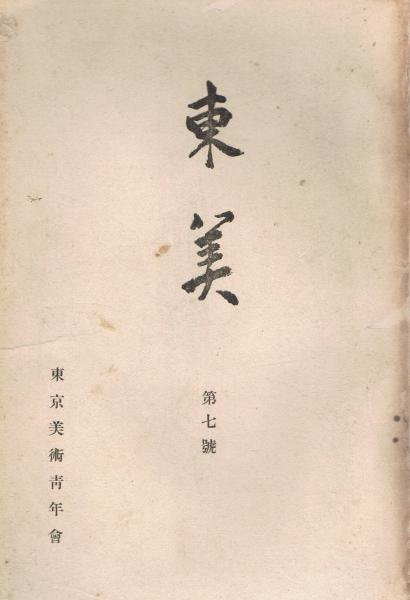 東美
第七號
東京美術青年會